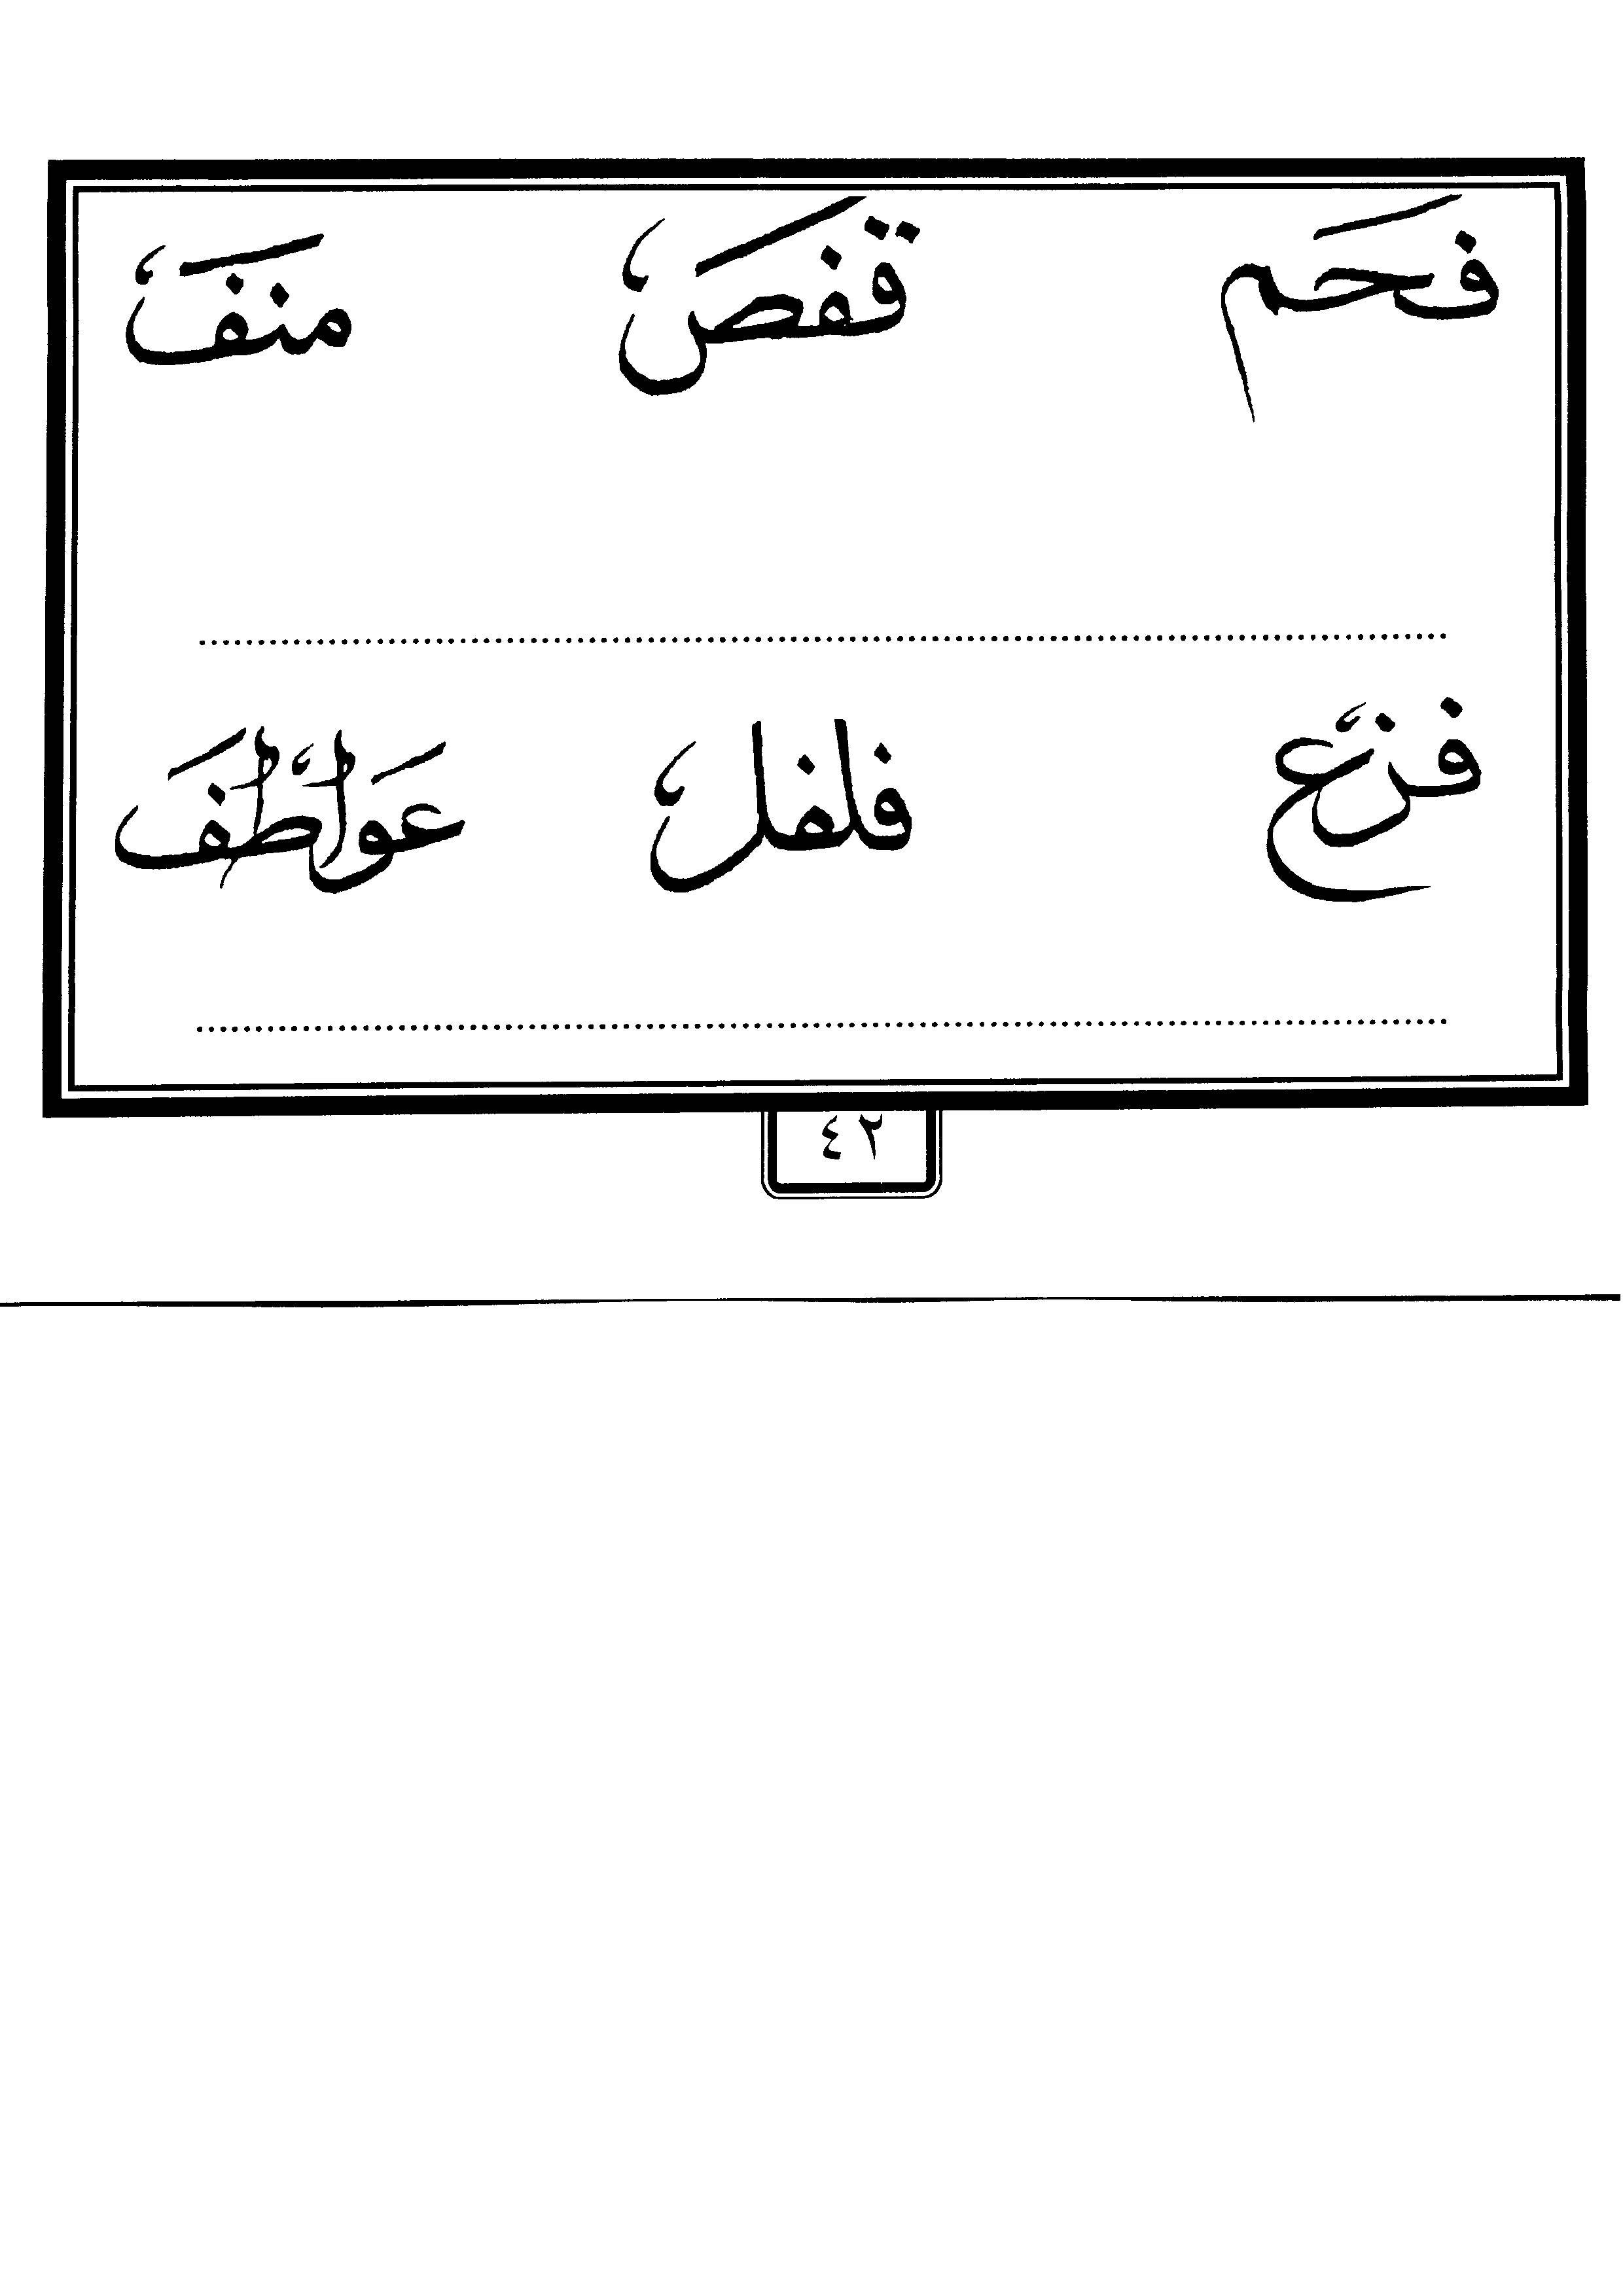 فَحَم قفَصُ منفَُ
فزع فلفلُ عَواطفَ
٤٢